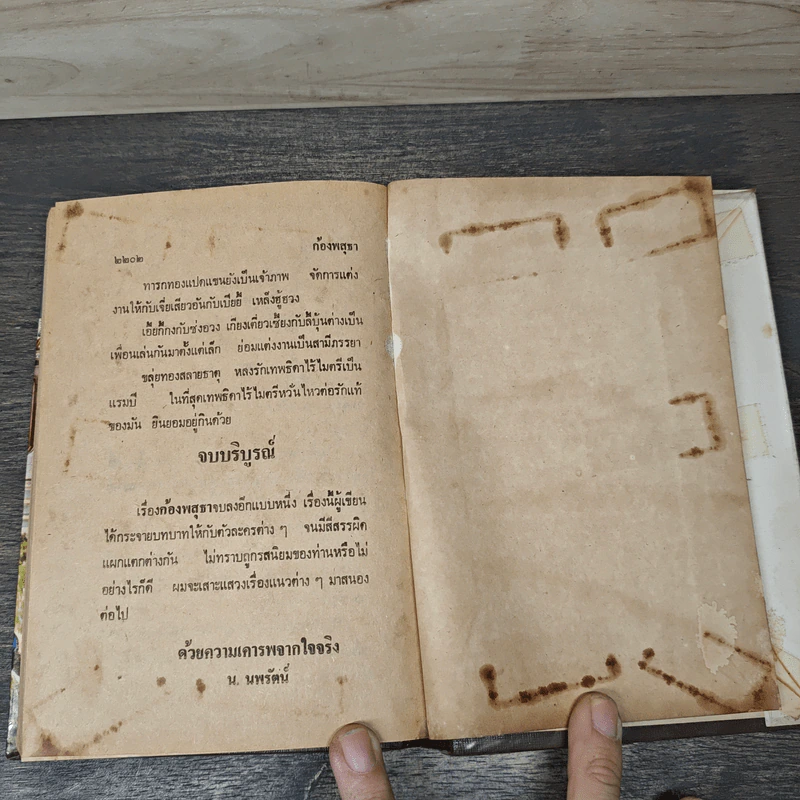 ๒๒๐๒ ก้องพสุธา
ทารกทองแปดแขนยังเป็นเจ้าภาพ จัดการแต่ง
งานให้กับเจี่ยเสียวอันกับเบียยี้ เหล็งฮู้ฮวง
เอี้ยกี้กงกับซ่งฮวง เกียงเตี่ยวเซียงกับลี้บุ้นต่างเป็น
เพื่อนเล่นกันมาตั้งแต่เล็ก ย่อมแต่งงานเป็นสามีภรรยา
ขลุ่ยทองสลายธาตุ หลงรักเทพธิดาไร้ไมตรีเป็น
แรมปี ในที่สุดเทพธิดาไร้ไมตรีหวั่นไหวต่อรักแท้
ของมัน ยินยอมอยู่กินด้วย
จบบริบูรณ์
เรื่องก้องพสุธาจบลงอีกแบบหนึ่ง เรื่องนี้ผู้เขียน
ได้กระจายบทบาทให้กับตัวละครต่าง ๆ จนมีสีสรรผิด
แผกแตกต่างกัน ไม่ทราบถูกรสนิยมของท่านหรือไม่
อย่างไรก็ดี ผมจะเสาะแสวงเรื่องแนวต่าง ๆ มาสนอง
ต่อไป
ด้วยความเคารพจากใจจริง
น. นพรัตน์